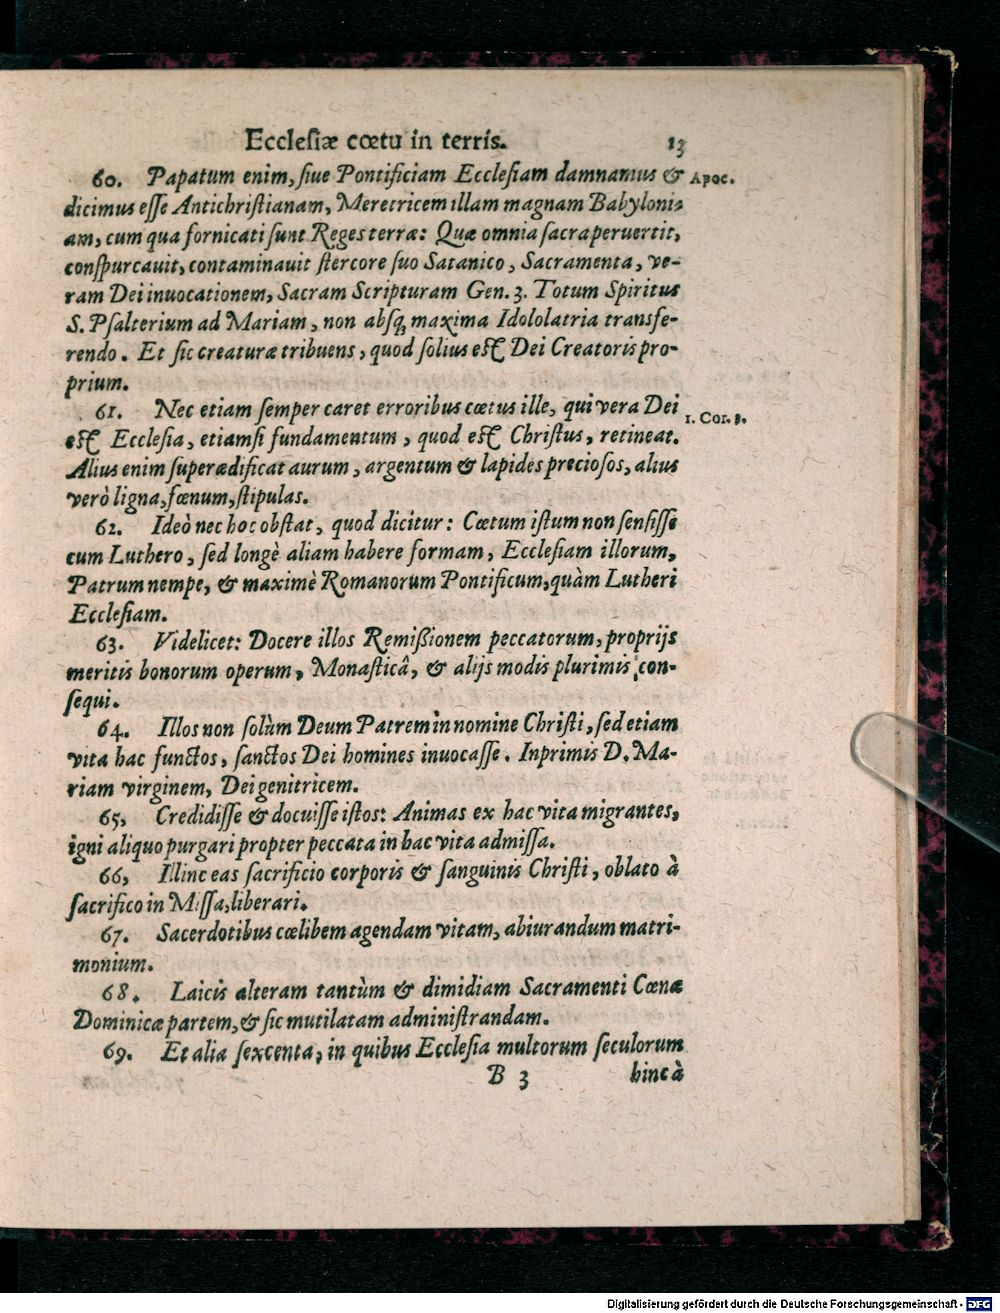 Ecclesiæ cœtu in terris. 13
60. Papatum enim, siue Pontificiam Ecclesiam damnamus & Apoc.
dicimus esse Antichristianam, Meretricem illam magnam Babyloni-
am, cum qua fornicati sunt Reges terræ: Quæ omnia sacra peruertit,
conspurcauit, contaminauit stercore suo Satanico, Sacramenta, ve-
ram Dei inuocationem, Sacram Scripturam Gen. 3. Totum Spiritus
S. Psalterium ad Mariam, non absq; maxima Idololatria transfe-
rendo. Et sic creaturæ tribuens, quod solius est Dei Creatoris pro-
prium.
61. Nec etiam semper caret erroribus cœtus ille, qui vera Dei 1. Cor. 3.
est Ecclesia, etiamsi fundamentum, quod est Christus, retineat.
Alius enim superædificat aurum, argentum & lapides preciosos, alius
verò ligna, fœnum, stipulas.
62. Ideò nec hoc obstat, quod dicitur: Cœtum istum non sensisse
cum Luthero, sed longè aliam habere formam, Ecclesiam illorum,
Patrum nempe, & maximè Romanorum Pontificum, quàm Lutheri
Ecclesiam.
63. Videlicet: Docere illos Remißionem peccatorum, proprijs
meritis bonorum operum, Monasticâ, & alijs modis plurimis con-
sequi.
64. Illos non solùm Deum Patrem in nomine Christi, sed etiam
vita hac functos, sanctos Dei homines inuocasse. Inprimis D. Ma-
riam virginem, Dei genitricem.
65, Credidisse & docuisse istos: Animas ex hac vita migrantes,
igni aliquo purgari propter peccata in hac vita admissa.
66, Illinc eas sacrificio corporis & sanguinis Christi, oblato à
sacrifico in Missa, liberari.
67. Sacerdotibus cœlibem agendam vitam, abiurandum matri-
monium.
68. Laicis alteram tantùm & dimidiam Sacramenti Cœnæ
Dominicæ partem, & sic mutilatam administrandam.
69. Et alia sexcenta, in quibus Ecclesia multorum seculorum
B 3 hinc à
Digitalisierung gefördert durch die Deutsche Forschungsgemeinschaft - DFG